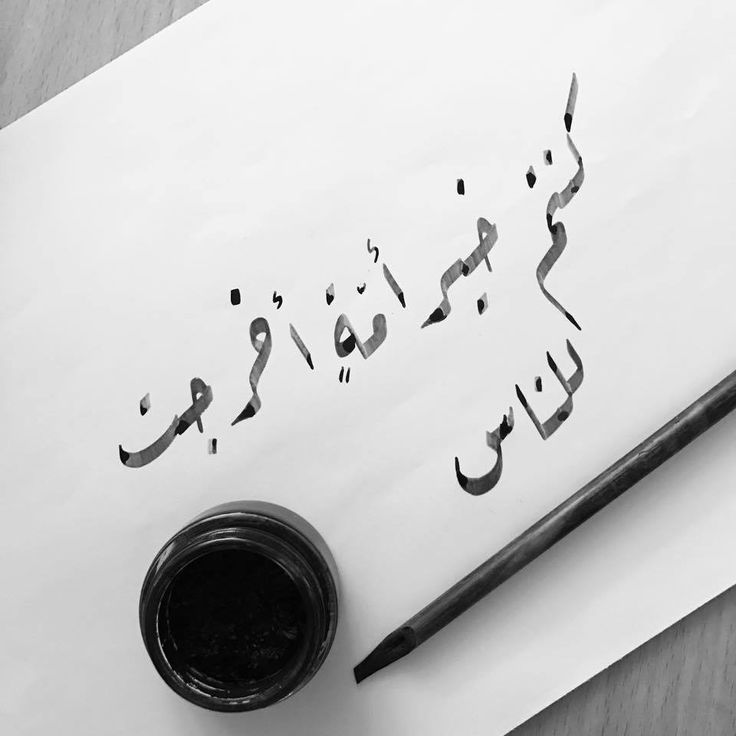 كنتم خير أمّةٍ أخرجت
للناس